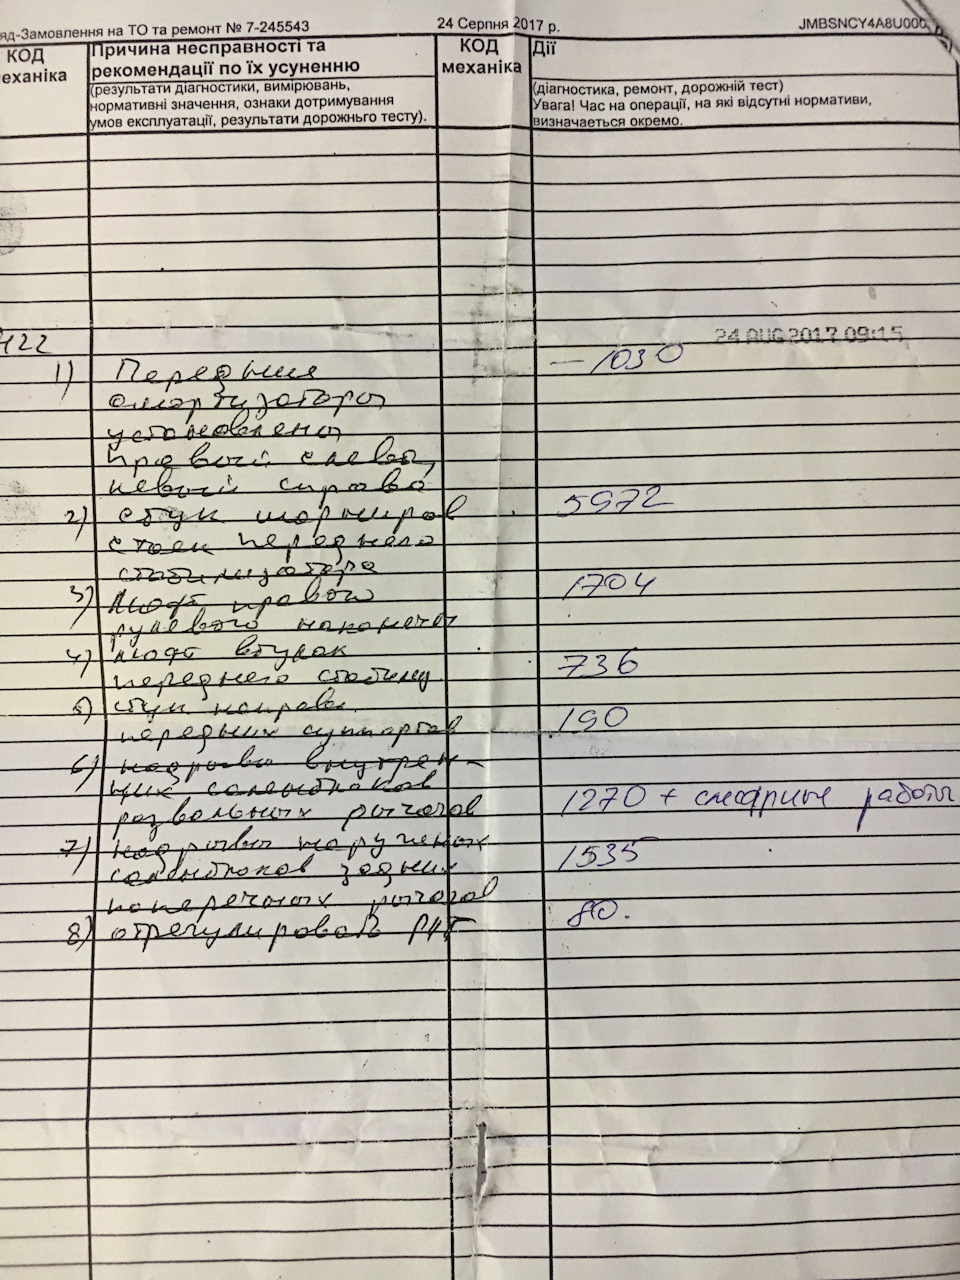 яд-Замовлення на ТО та ремонт № 7-245543
24 Серпня 2017 р.
JMBSNCY4A8U000
КОД
механіка
Причина несправності та
рекомендації по їх усуненню
КОД
механіка
Дії
(результати діагностики, вимірювань,
нормативні значення, ознаки дотримування
умов експлуатації, результати дорожнього тесту).
(діагностика, ремонт, дорожній тест)
Увага! Час на операції, на які відсутні нормативи,
визначаеться окремо.
24 AUG 2017 09:15
422
1) Передние — 1030
амортизаторы
установлены
правый слева,
левый справа
2) стук шарниров 5972
стоек переднего
стабилизатора
3) Люфт правого 1704
рулевого наконечн
4) люфт втулок 736
переднего стабилиз
5) стук направл.
передних суппортов 190
6) надрывы внутрен-
них сайлентблоков
развальных рычагов 1270 + слесарные работы
7) надрывы наружных
сайлентблоков задних 1535
поперечных рычагов
8) отрегулировать 80.